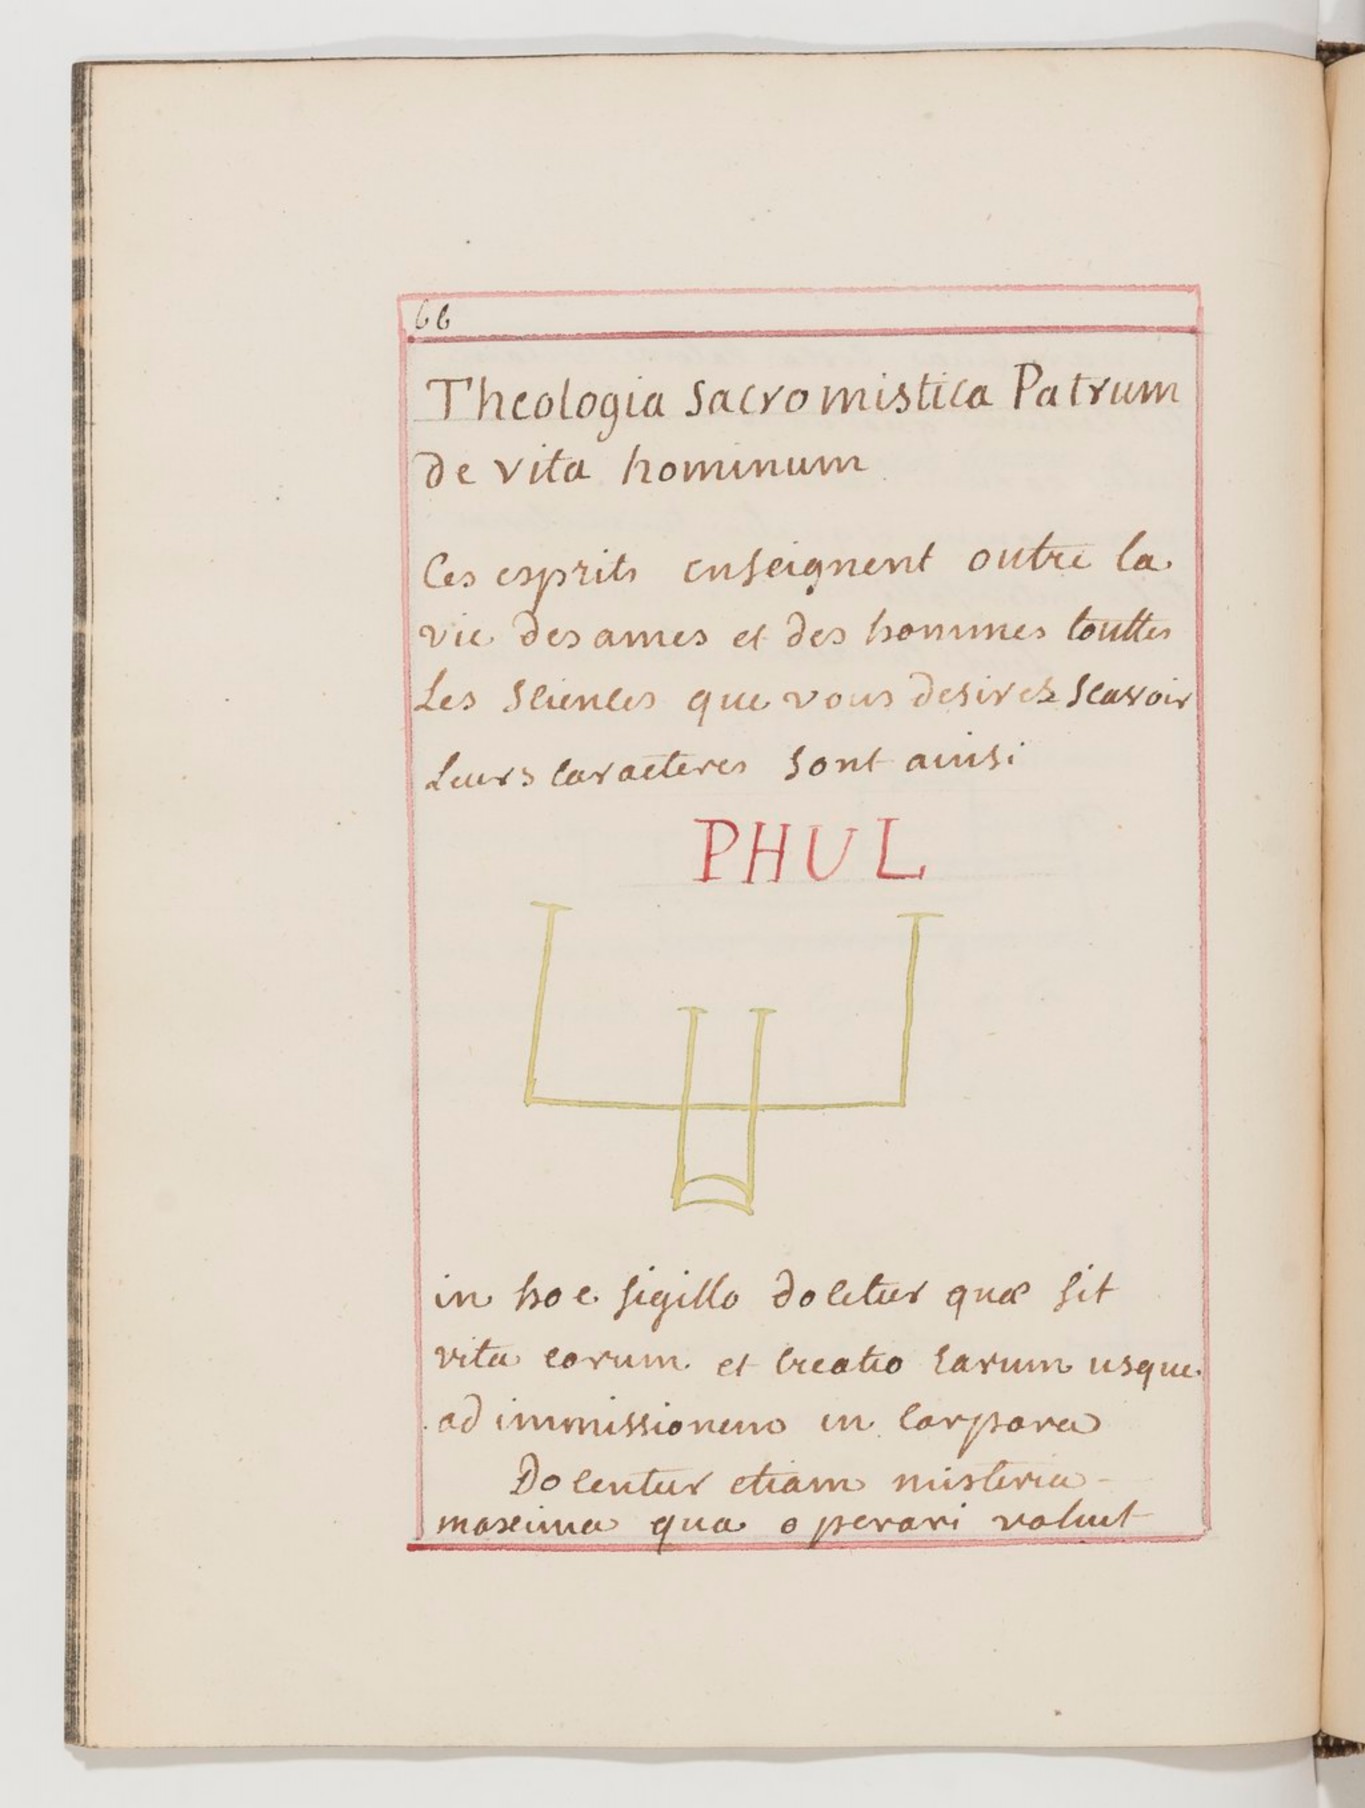 66
Theologia Sacromistica Patrum
de vita hominum
Ces esprits enseignent outre la
vie des ames et des hommes touttes
Les Sciences que vous desirez scavoir
Leurs caracteres sont ainsi
PHUL
in hoc sigillo docetur quæ sit
vita eorum et creatio earum usque
ad immissionem in corpora
Docentur etiam misteria
maxima qua operari volunt